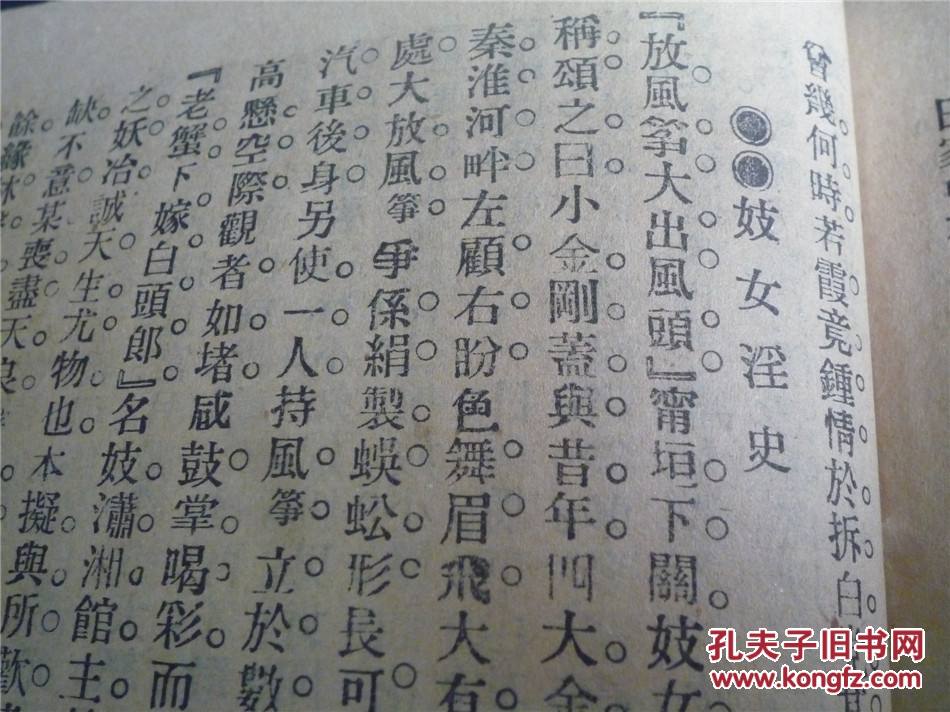 曾幾何時若霞竟鍾情於拆白
●●妓女淫史
『放風筝大出風頭』甯垣下關。妓女
稱頌之曰小金剛蓋與昔年四大金
秦淮河畔左顧。右盼色舞。眉飛大有
處大放風箏。爭係絹製。蜈蚣形長可
汽車後身另使一人持風箏。立於數
高懸空際。觀者如堵。咸鼓掌喝彩。而
『老蟹下嫁白頭郎』名妓瀟湘館主
之妖冶誠天生尤物也。本擬與所歡
缺不意某喪盡天良
餘緣
孔夫子旧书网
www.kongfz.com